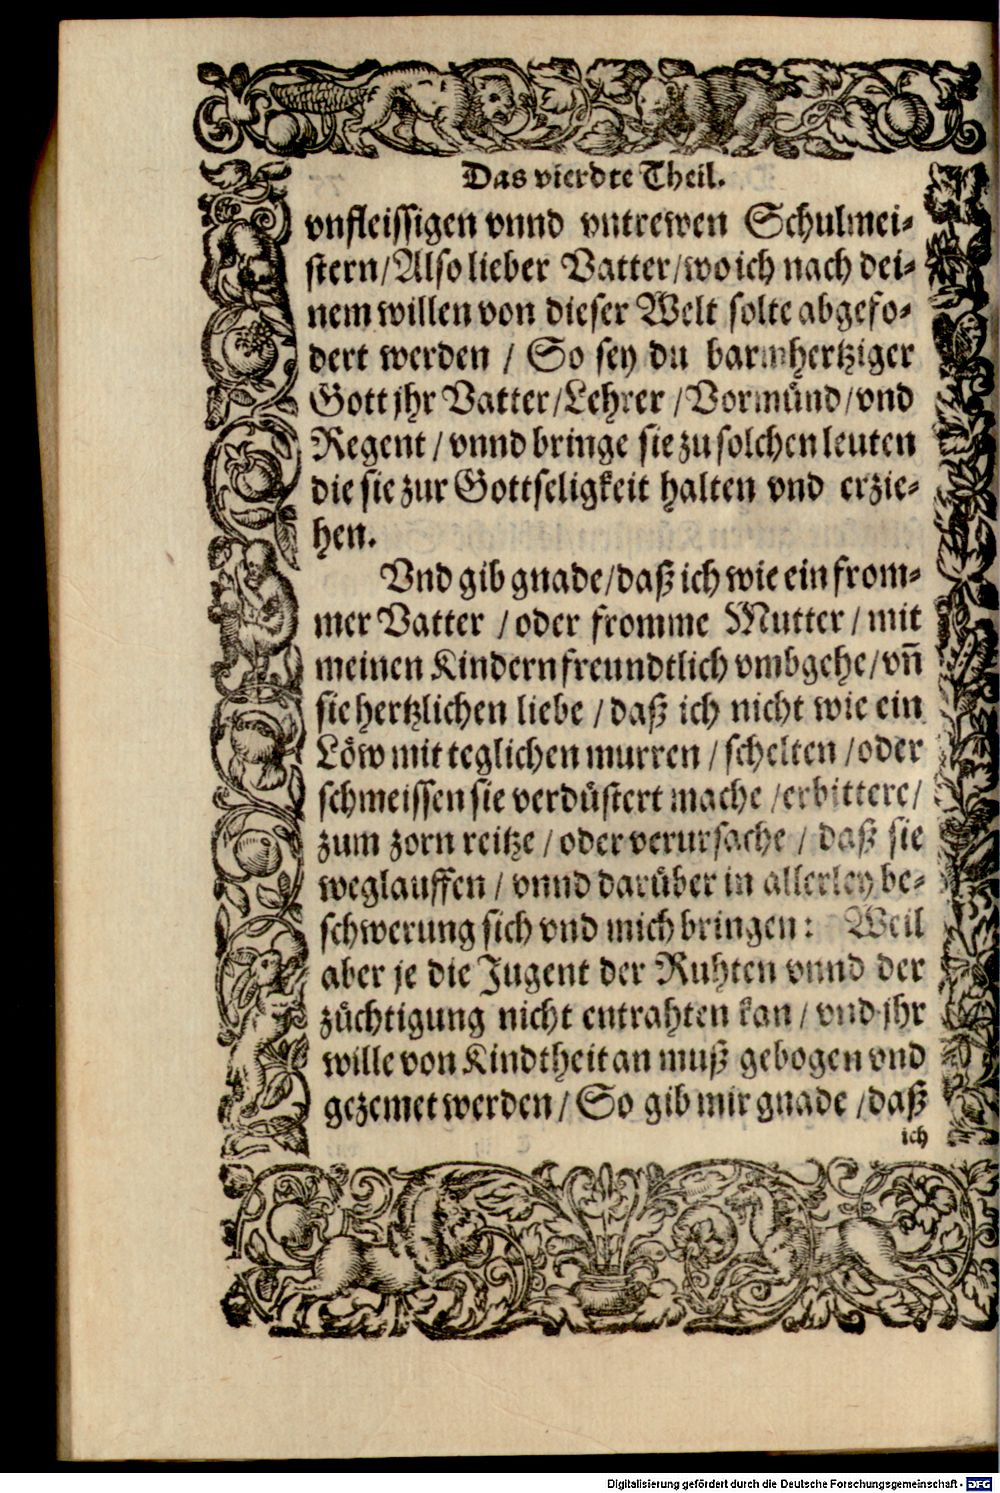 Das vierdte Theil.
vnfleissigen vnnd vntrewen Schulmei-
stern/Also lieber Vatter/wo ich nach dei-
nem willen von dieser Welt solte abgefo-
dert werden / So sey du barmhertziger
Gott jhr Vatter/Lehrer /Vormünd/vnd
Regent / vnnd bringe sie zu solchen leuten
die sie zur Gottseligkeit halten vnd erzie-
hen.
Vnd gib gnade/daß ich wie ein from-
mer Vatter / oder fromme Mutter / mit
meinen Kindern freundtlich vmbgehe/vn̄
sie hertzlichen liebe / daß ich nicht wie ein
Löw mit teglichen murren / schelten /oder
schmeissen sie verdüstert mache /erbittere/
zum zorn reitze / oder verursache / daß sie
weglauffen / vnnd darüber in allerley be-
schwerung sich vnd mich bringen: Weil
aber je die Jugent der Ruhten vnnd der
züchtigung nicht entrahten kan / vnd jhr
wille von Kindtheit an muß gebogen vnd
gezemet werden / So gib mir gnade /daß
ich
Digitalisierung gefördert durch die Deutsche Forschungsgemeinschaft - DFG